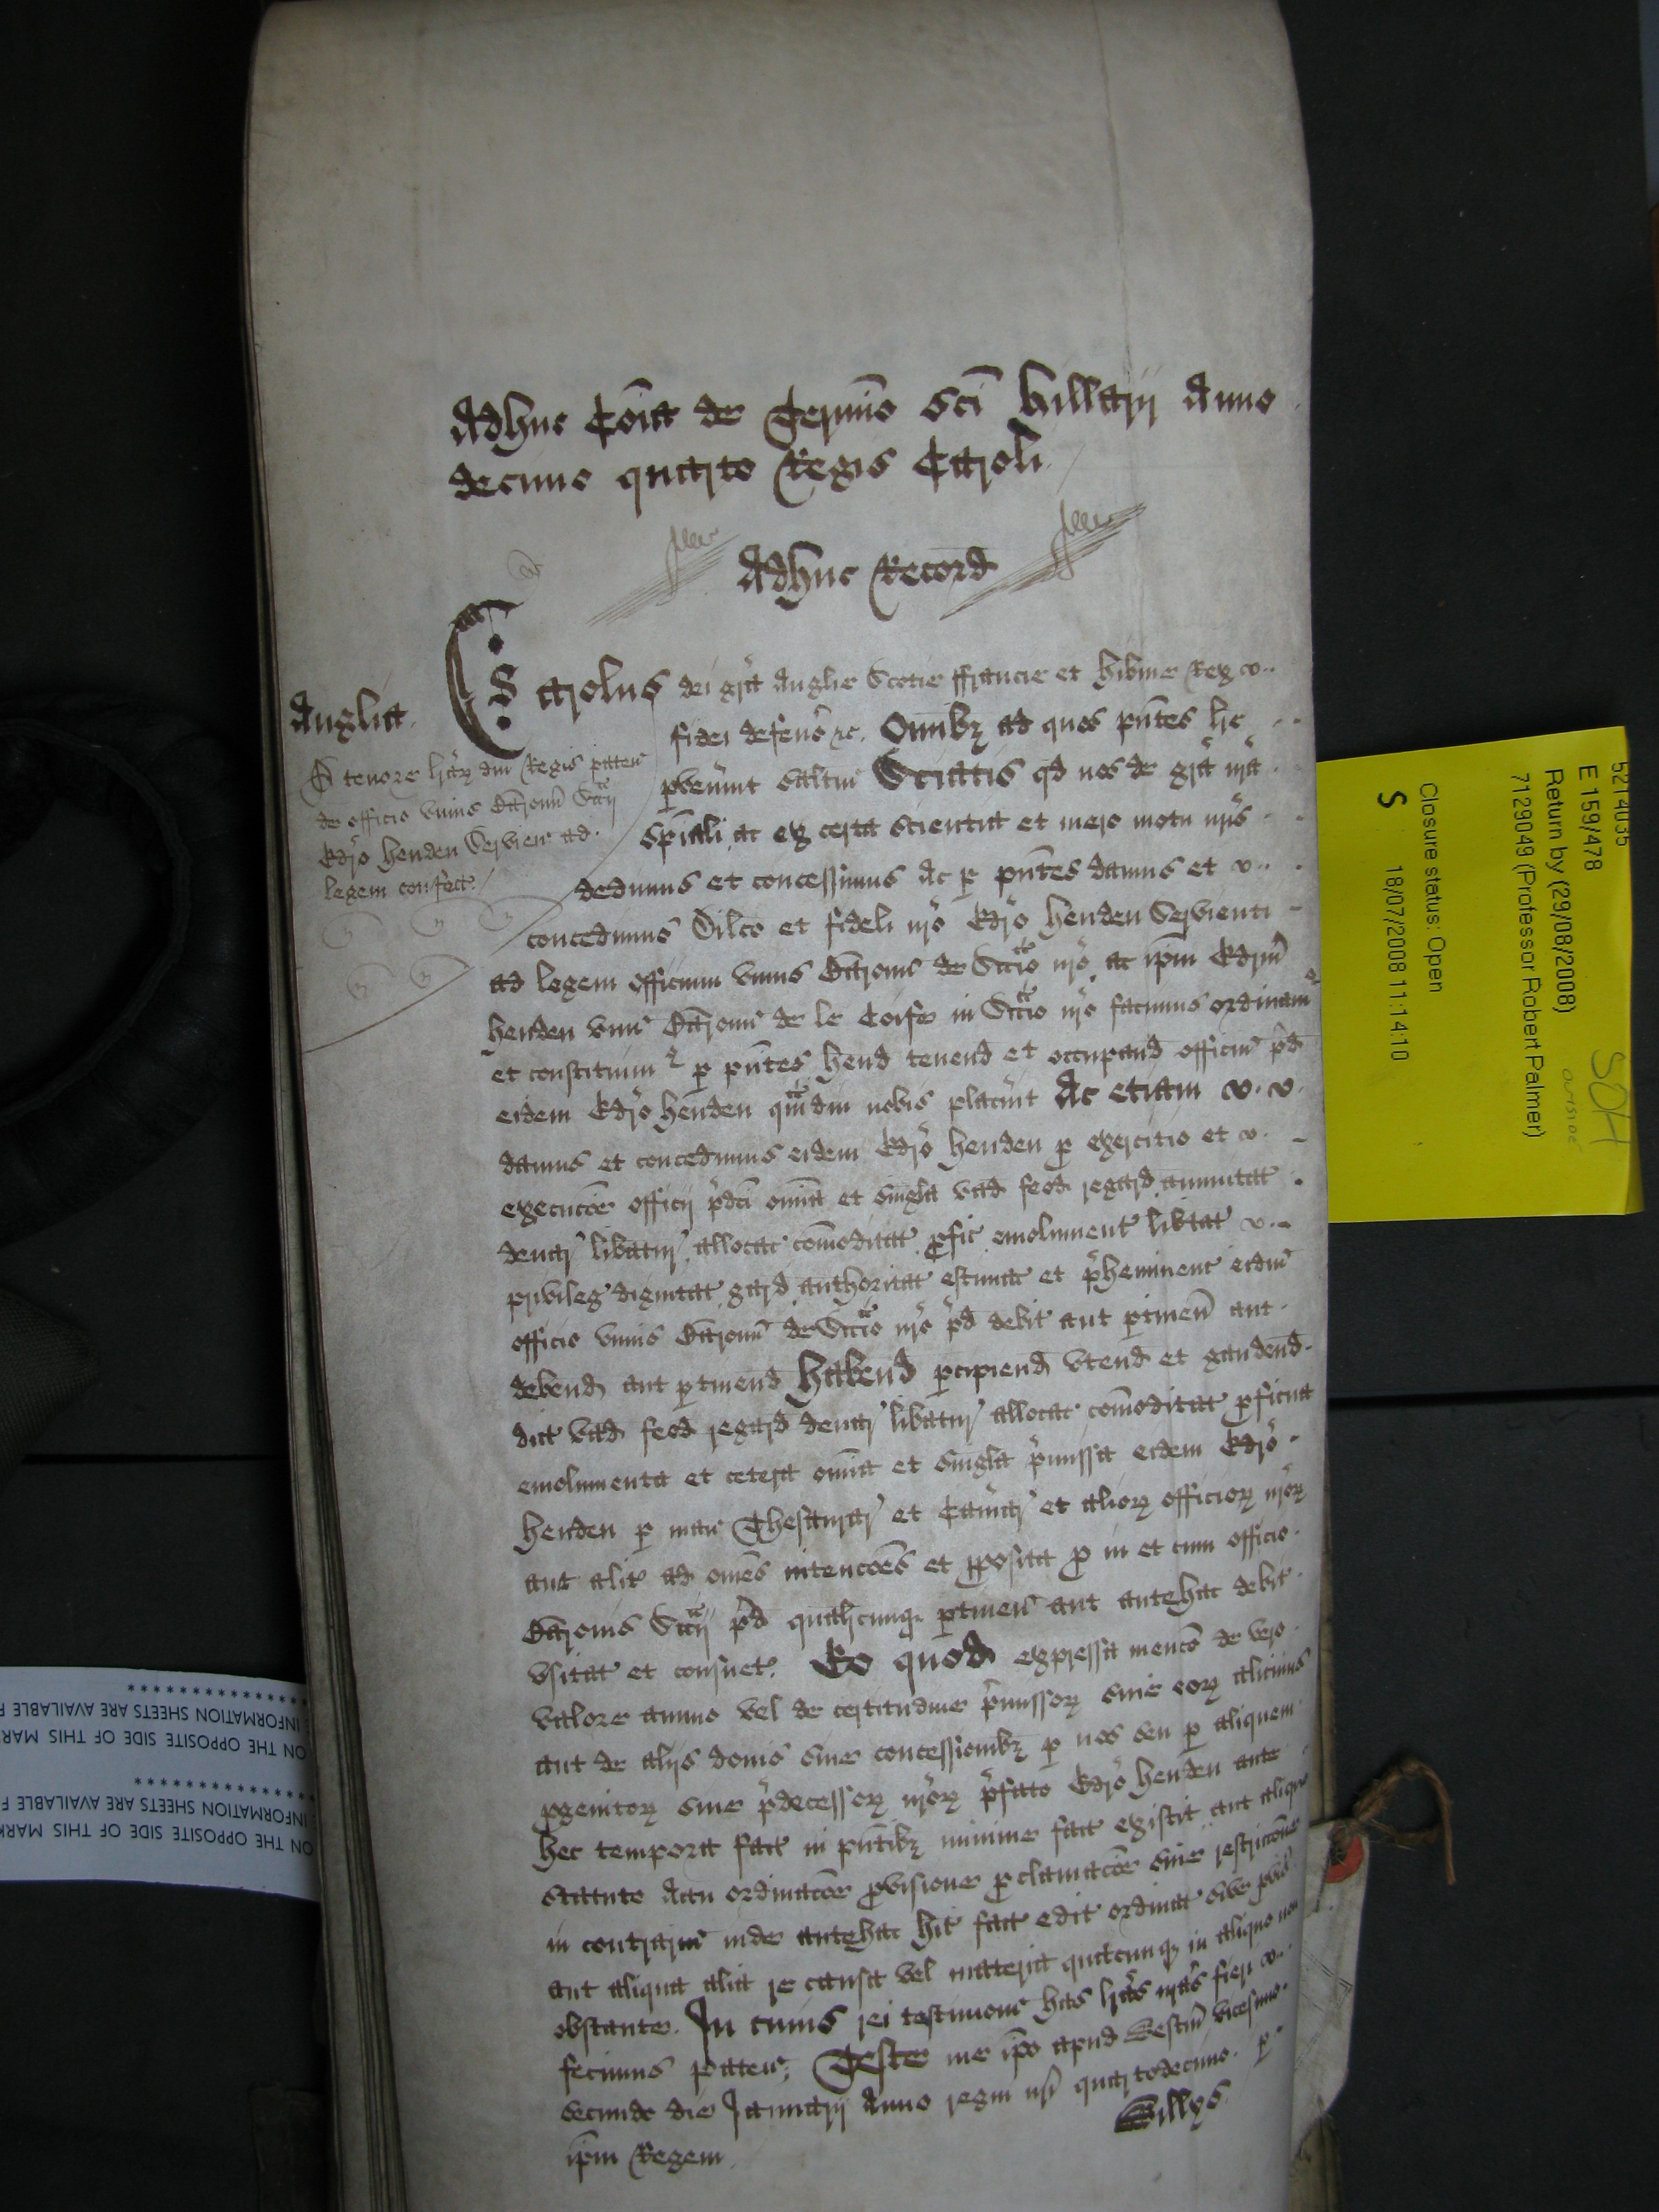 Adhuc Cōia de Termīo Sc̄i Hillarij Anno
decimo quarto Regis Caroli
Adhuc Record
Anglia.
A tenore lr̄aꝝ dn̄i Regis paten̄
de officio vnius Baronū Scc̄ij
Edr̄o Henden Servien̄ ad
legem confect̄
Carolus dei gr̄a Anglie Scotie ffrancie et Hib̄nie Rex
fidei defens̄ &c. Om̄ib3 ad quos pn̄tes lr̄e
pvenint salt̄m Sciatis qd nos de gr̄a nr̄a
sp̄iali ac ex certa scientia et mero motu nr̄is
dedimus et concessimus Ac p pn̄tes damus et
concedimus Dilc̄o et fideli nr̄o Edr̄o Henden Servienti
ad legem officium vnius Baronū de Scc̄io nr̄o ac ip̄m Edr̄m
Henden vnū Baronū de le Coife in Scc̄io nr̄o facimus ordinam
et constituim p pn̄tes hend tenend et occupand officiū p̄d
eidem Edr̄o Henden qm̄diu nobis placūit Ac etiam
damus et concedimus eidem Edr̄o Henden p exercitio et
execuc̄oe officij p̄dc̄i om̄ia et singl̄a vad feod regard annuitat
denar̄ libatur̄ allocac̄ com̄oditat pfic̄ emolument libtat
privileg dignitat gard authoritat estimac̄ et p̄heminenc̄ eidm̄
officio vnius Baronū de Scc̄io nr̄o p̄d debit aut ptinen̄ aut
debend aut ptinend Habend pcipiend vtend et gaudend
dict vad feod regard denar̄ libatur̄ allocac̄ com̄oditat pficua
emolumenta et cetera om̄ia et singl̄a p̄missa eidem Edr̄o
Henden p man̄ Thesaurar̄ et Cam̄ar̄ et alioꝝ officioꝝ nr̄oꝝ
aut alit̄ ad om̄es intenc̄oes et pposita p in et cum officio
Baronis Scc̄ij p̄d qualit̄cunq ptinen̄ aut antehac debit
vsitat et consuet. Eo quod expressa menc̄o de vero
valore annuo vel de certitudine p̄missoꝝ sive eoꝝ alicuius
aut de alijs donis sive concessionib3 p nos seu p aliquem
pgenitoꝝ sive p̄decessoꝝ nr̄oꝝ p̄fato Edr̄o Henden ante
hec tempora fact in pn̄tib3 minime fact existit aut aliquo
statuto Actu ordinac̄oe pvisione pclamac̄oe sive restricc̄one
in contrariū inde antehac hit fact edit ordinat sive pvis̄
aut aliqua alia re causa vel materia quacunq3 in aliquo non
obstante. In cuius rei testimoniū has lr̄as nr̄as fieri
fecimus paten̄; Teste me ip̄o apud Westm̄ vicesimo
secundo die Januarij Anno regni nr̄i quartodecimo. p
ip̄m Regem. Willys
5214035
E 159/478
Return by (29/08/2008)
7129049 (Professor Robert Palmer)
Closure status: Open
S 18/07/2008 11:14:10
SOH
ON THE OPPOSITE SIDE OF THIS MARK
INFORMATION SHEETS ARE AVAILABLE F
****************
ON THE OPPOSITE SIDE OF THIS MARK
INFORMATION SHEETS ARE AVAILABLE F
****************